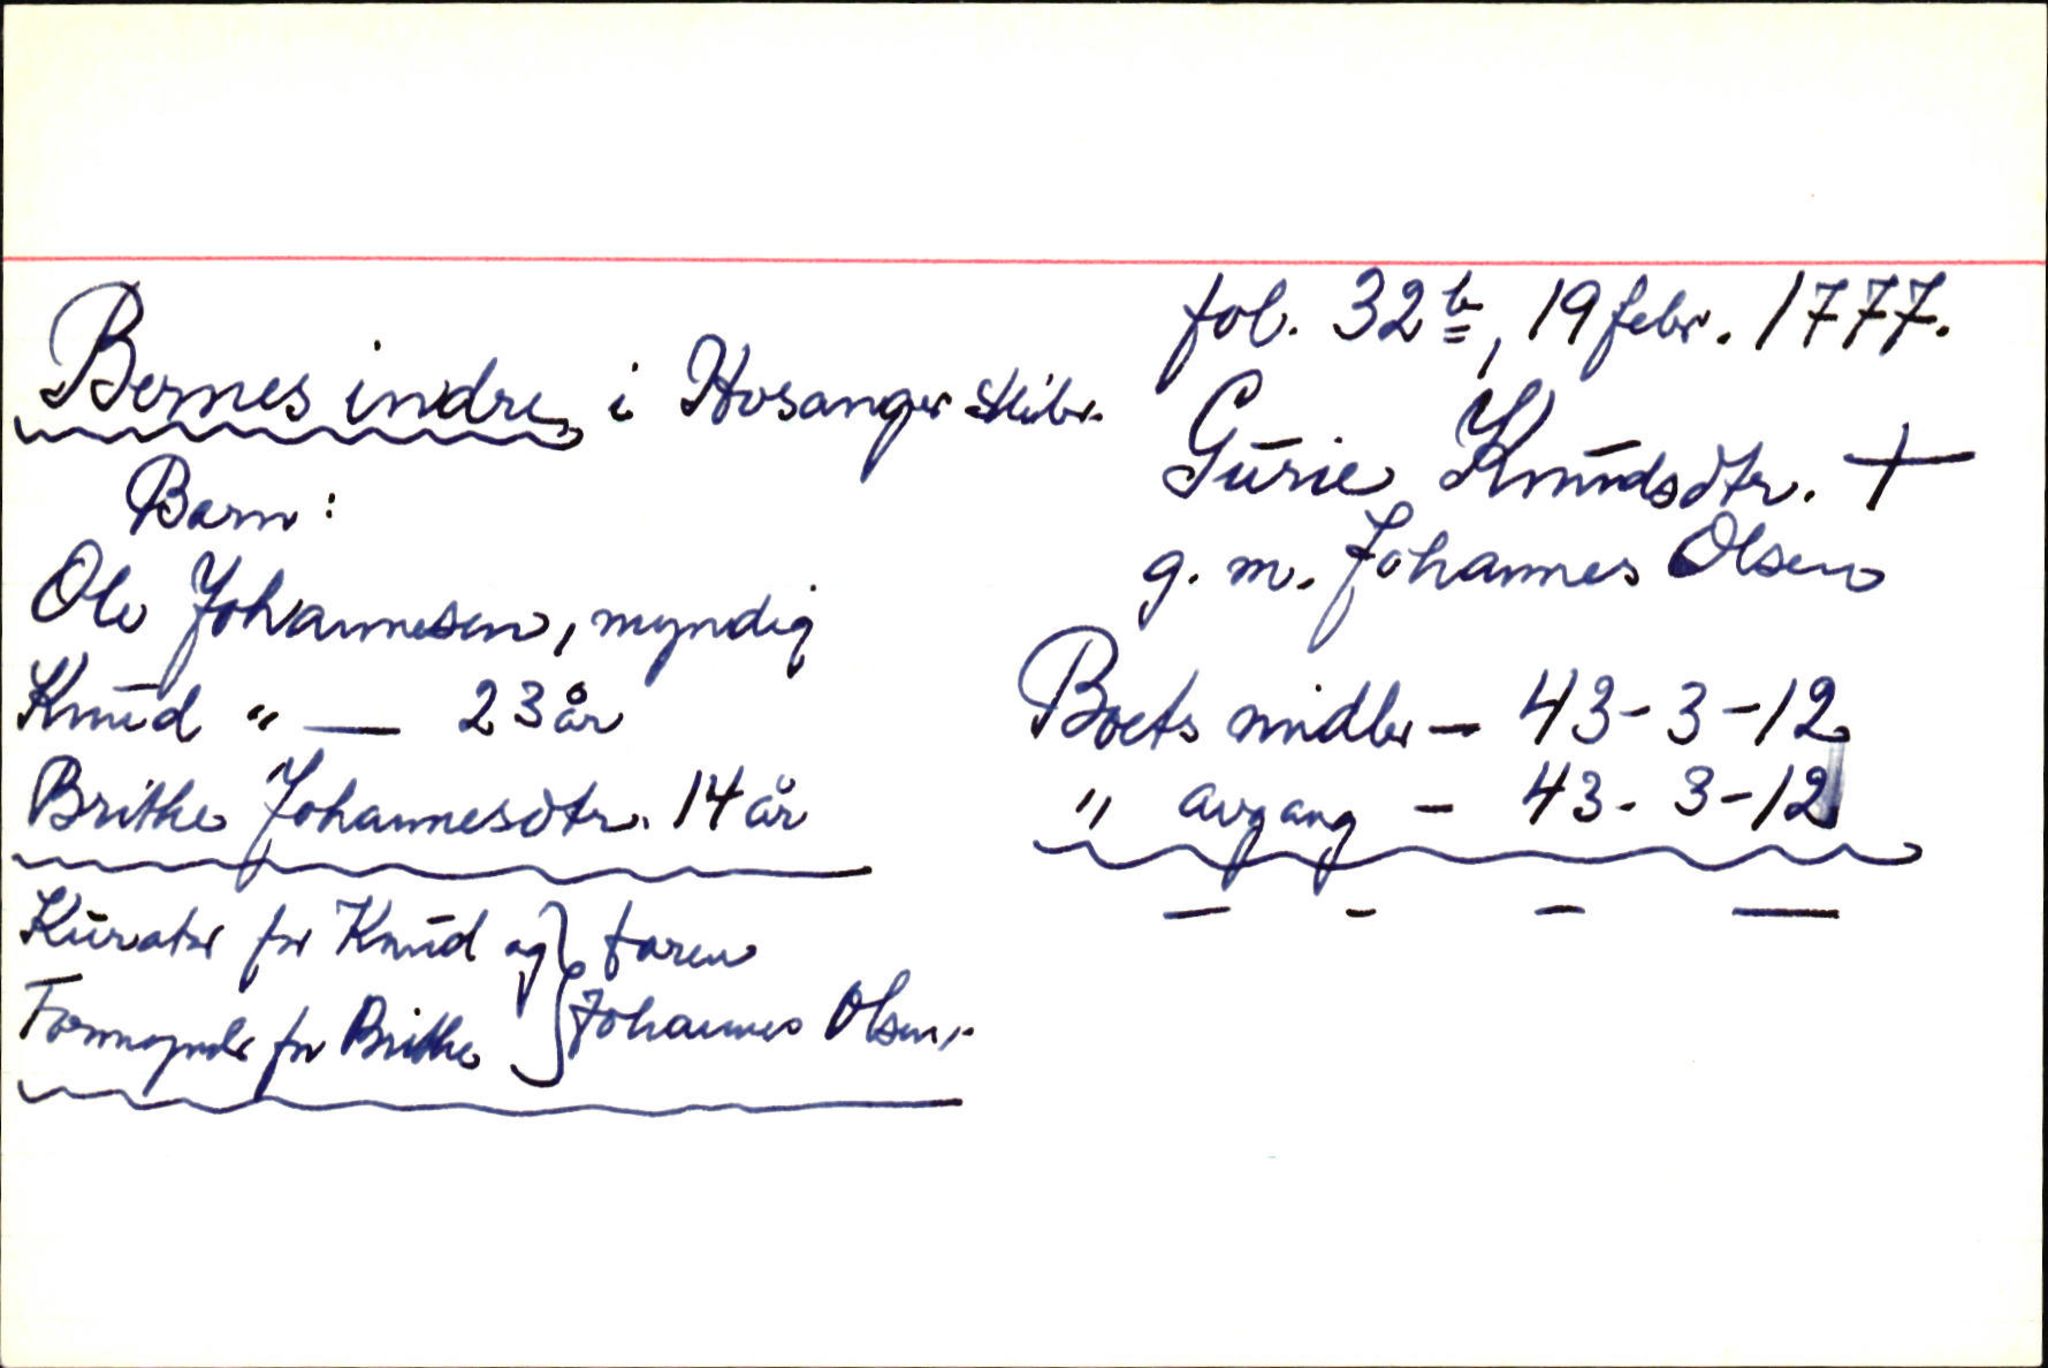 fol. 32 b, 19 febr. 1777.
Bernes indre i Hosanger skibr.
Gurie Knudsdtr. +
g. m. Johannes Olsen
Barn:
Ole Johannesen, myndig
Knud " — 23 år
Brithe Johannesdtr. 14 år
Boets midler — 43 - 3 - 12
" avgang — 43 - 3 - 12
— - - —
Kurator for Knud og } faren
Formynder for Brithe } Johannes Olsen.